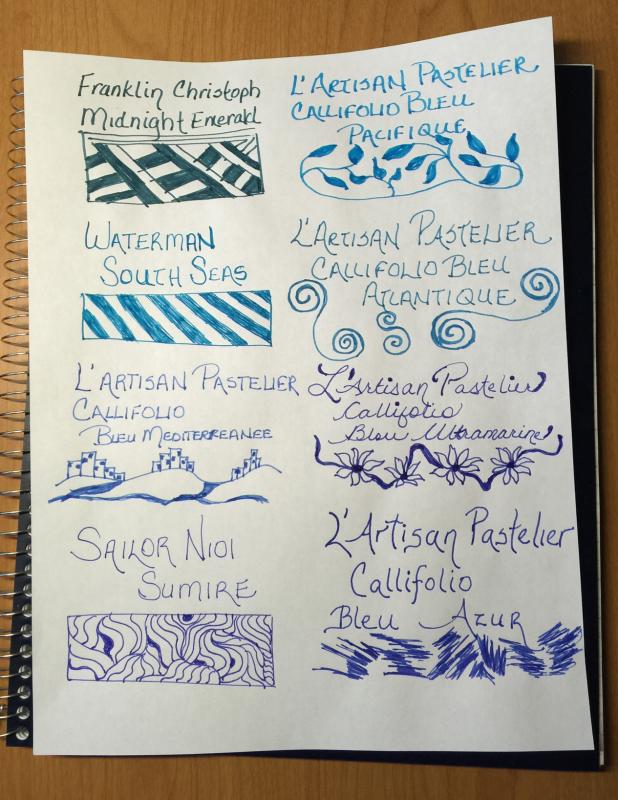 Franklin Christoph
Midnight Emerald
L'ARTISAN PASTELIER
CALLIFOLIO BLEU
PACIFIQUE
WATERMAN
SOUTH SEAS
L'ARTISAN PASTELIER
CALLIFOLIO BLEU
ATLANTIQUE
L'ARTISAN PASTELIER
CALLIFOLIO
BLEU MEDITERREANEE
L'Artisan Pastelier
Callifolio
Bleu Ultramarine
SAILOR NIOI
SUMIRE
L'Artisan Pastelier
Callifolio
Bleu Azur